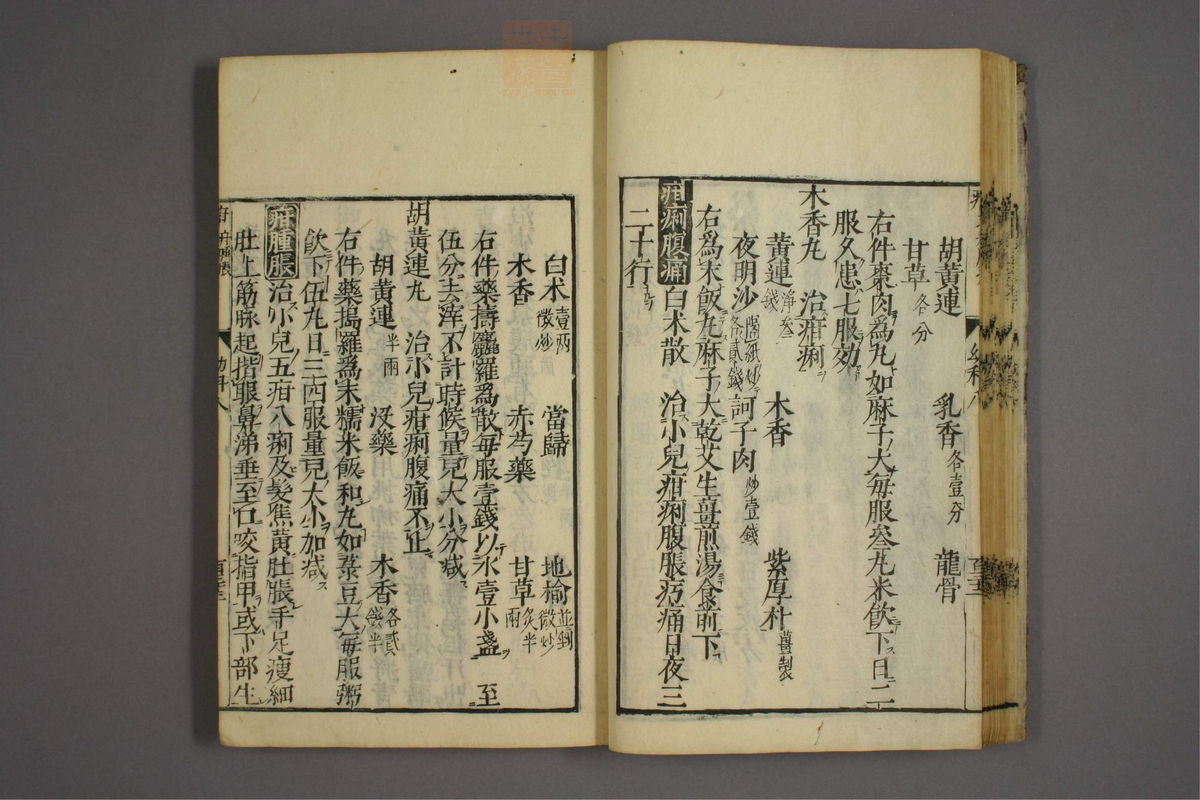 胡黃連　乳香各壹分　龍骨
甘草各分
右件棗肉為丸如麻子大每服叄丸米飲下日二
服久患七服効
木香丸　治疳痢
黃連淨叄錢　木香　紫厚朴薑製
夜明沙隔紙炒各貳錢　訶子肉炒壹錢
右為末飯丸麻子大乾艾生薑煎湯食前下
疳痢腹痛　白朮散　治小兒疳痢腹脹㽲痛日夜三
二十行
白朮壹兩微炒　當歸　地榆並剉微炒
木香　赤芍藥　甘草炙半兩
右件藥擣麤羅為散每服壹錢以水壹小盞至
伍分去滓不計時候量兒大小分減
胡黃連丸　治小兒疳痢腹痛不止
胡黃連半兩　沒藥　木香各貳錢半
右件藥搗羅為末糯米飯和丸如菉豆大每服粥
飲下伍丸日三四服量兒大小加減
疳腫脹　治小兒五疳八痢及髮焦黃肚脹手足瘦細
肚上筋脉起揩眼鼻涕垂至口咬指甲或下部生
幼科八